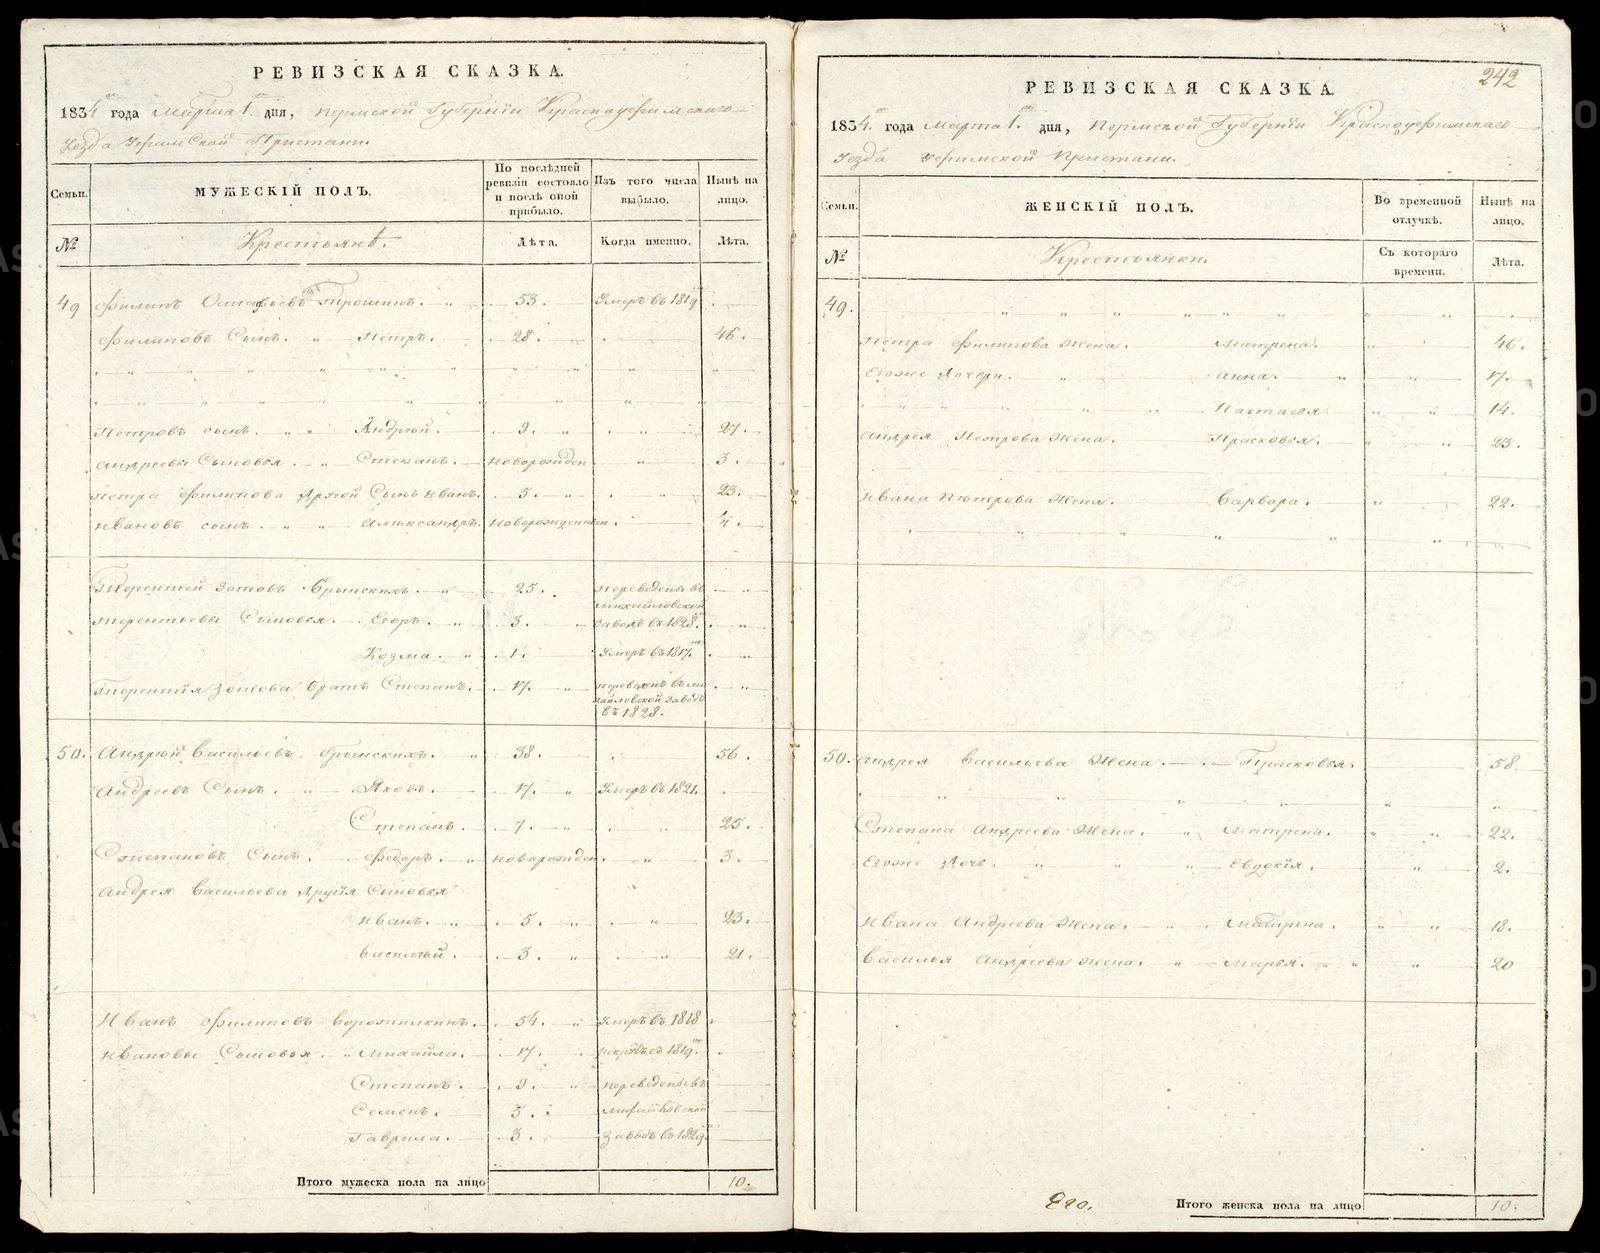 РЕВИЗСКАЯ СКАЗКА.
1834 года Марта 1 дня, Пермской Губернiи Красноуфимскаго
Уезда Уфимской Пристани.
Семьи. МУЖЕСКIЙ ПОЛЪ. По послѣдней ревизiи состояло и послѣ оной прибыло. Изъ того числа выбыло. Нынѣ на лицо.
№ Крестьянѣ. Лѣта. Когда именно. Лѣта.
49 Филипъ Трошинъ. 53. Умеръ въ 1819
Филиповъ Сынъ. Петръ. 28. 46.
Петровъ сынъ. Андрѣй. 9. 27.
Андреевы Сыновья. Степанъ. новорожден 3.
Петра Филипова Другой Сынъ Иванъ. 5. 23.
Ивановъ сынъ. Александръ. Новорожденный.
Терентей Зотовъ Брынскихъ. 25. переведенъ въ
Михайловской
Терентьевы Сыновья. Егоръ. 3. заводъ въ 1828.
Козма. 1. Умеръ въ 1817.
Терентiя Зотова братъ Степанъ. 17. переведенъ въ Ми
хайловской заводъ
въ 1828.
50. Андрѣй Васильевъ Брынскихъ. 38. 56.
Андреевъ Сынъ. Яковъ. 17. Умеръ въ 1821.
Степанъ. 7. 25.
Степановъ Сынъ. Федоръ. новорожден. 3.
Андрея Васильева Другiя Сыновья
Иванъ. 5. 23.
Василѣй. 3. 21.
Иванъ Филиповъ Ворожпикинъ. 54. Умеръ въ 1818
Ивановы Сыновья. Михайла. 17. 1819
Степанъ. 9. переведены въ
Семенъ. 5. Михайловской
Гаврила. 3. Заводъ въ 1829.
Итого мужеска пола на лицо 10.
242
РЕВИЗСКАЯ СКАЗКА.
1834. года Марта 1. дня, Пермской Губернiи Красноуфимскаго
Уезда Уфимской Пристани.
Семьи. ЖЕНСКIЙ ПОЛЪ. Во временной отлучкѣ. Нынѣ на лицо.
№ Крестьянки. Съ котораго времени. Лѣта.
49.
Петра Филипова Жена. Матрена. 46.
Егоже Дочери. Анна. 17.
Настасья. 14.
Андрея Петрова Жена. Прасковья. 23.
Ивана Петрова Жена. Варвара. 22.
50. Андрея Васильева Жена. Прасковья. 58
Степана Андреева Жена. Матрена. 22.
Егоже Дочь. Евдокiя. 2.
Ивана Андреева Жена. Матрена. 18.
Василья Андреева Жена. Марья. 20
Итого женска пола на лицо 10.